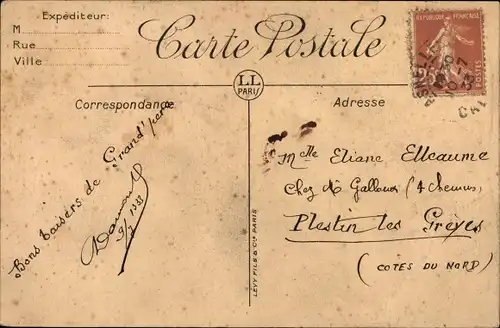 Expéditeur:
M
Rue
Ville
Carte Postale
LL
PARIS
REPUBLIQUE FRANÇAISE
Correspondance
Adresse
Bons baisers de Grand'père
9/7 1933
LÉVY FILS & Cie PARIS
Melle Eliane Elleaume
Chez Mr Gallouei (4 chemins)
Plestin les Grèves
(COTES DU NORD)